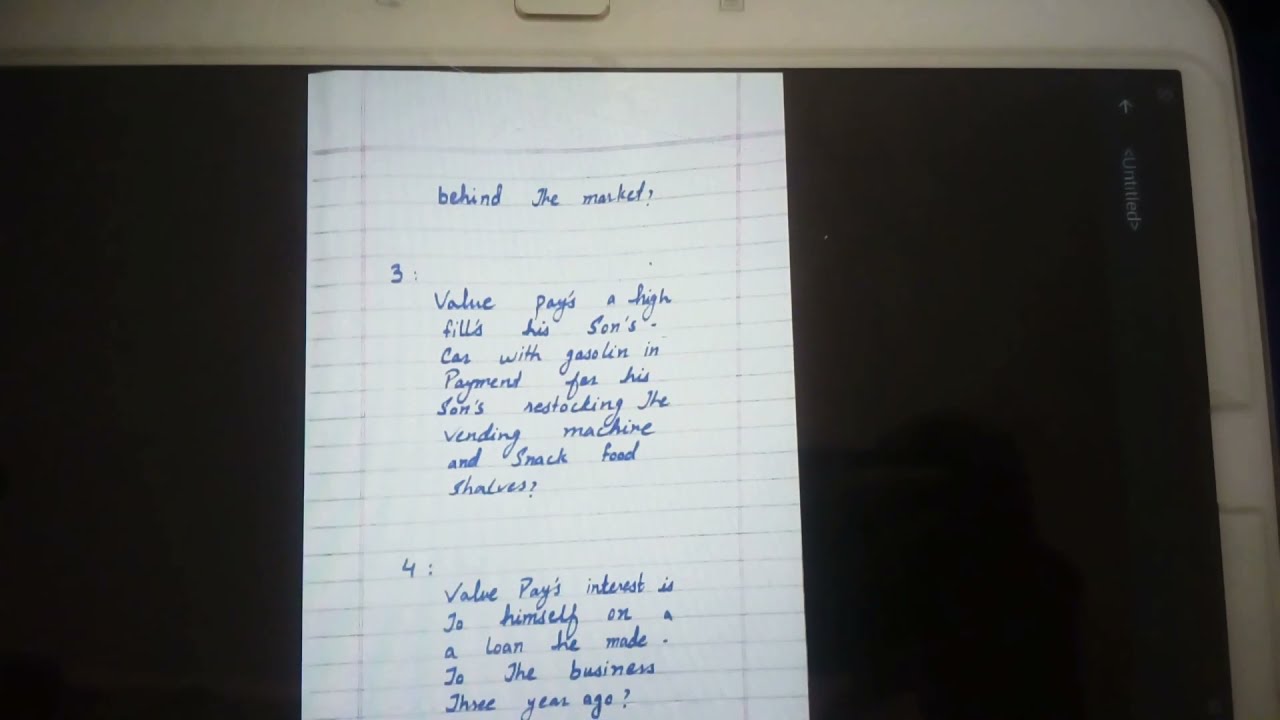 <Untitled>
behind The market?
3:
Value pay's a high
fill's his Son's.
Car with gasolin in
Payment for his
Son's restocking The
vending machine
and Snack food
shalves?
4:
Value Pay's interest is
To himself on a
a loan he made.
To The business
Three year ago?